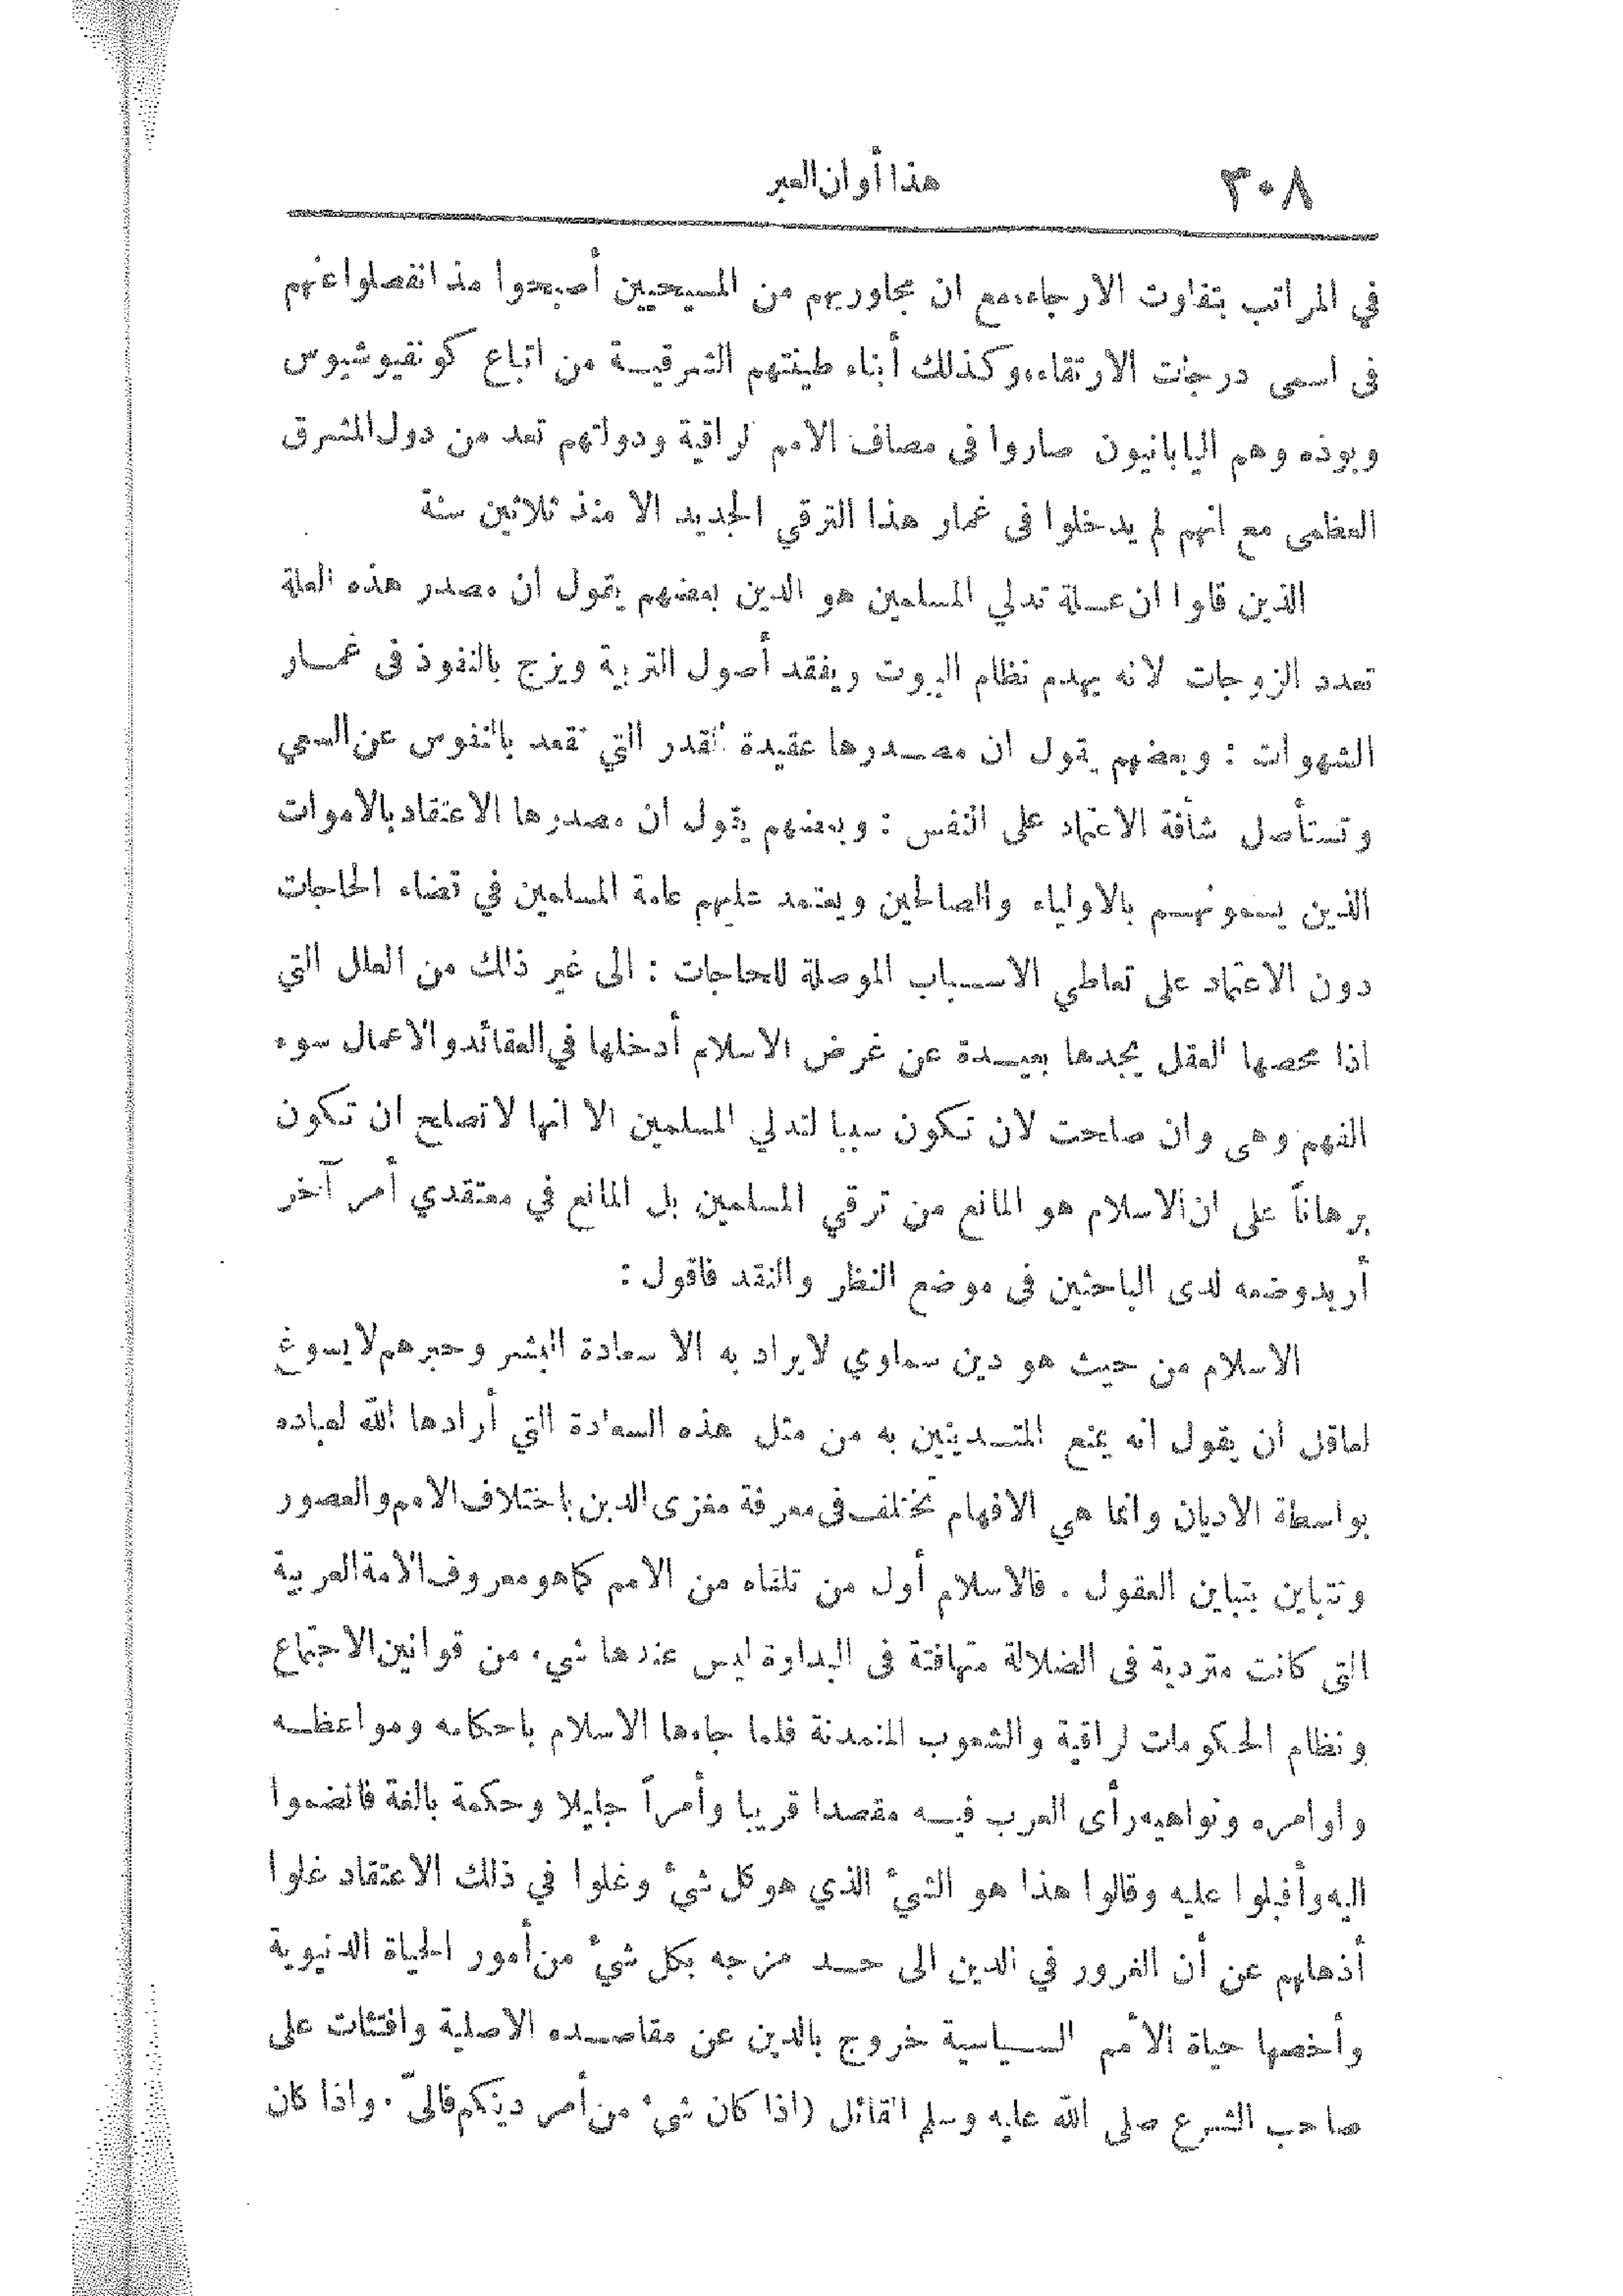 ٣٠٨ هذا أوان العبر
في المراتب بتفاوت الارجاء، مع ان مجاوريهم من المسيحيين أصبحوا مذ انفصلوا عنهم
فى اسمى درجات الارتقاء، وكذلك أبناء طينتهم الشرقيـة من اتباع كونفيوشيوس
وبوذه وهم اليابانيون صاروا فى مصاف الامم الراقية ودولتهم تعد من دول المشرق
العظمى مع انهم لم يدخلوا فى غمار هذا الترقي الجديد الا منذ ثلاثين سنة
الذين قالوا ان عـلة تدلي المسلمين هو الدين بعضهم يقول ان مصدر هذه العلة
تعدد الزوجات لانه يهدم نظام البيوت ويفقد أصول التربية ويزج بالنفوذ فى غمـار
الشهوات : وبعضهم يقول ان مصـدرها عقيدة القدر التي تقعد بالنفوس عن السعي
وتستأصل شأفة الاعتماد على النفس : وبعضهم يقول ان مصدرها الاعتقاد بالاموات
الذين يسمونهـم بالاولياء والصالحين ويعتمد عليهم عامة المسلمين في قضاء الحاجات
دون الاعتماد على تعاطي الاسـباب الموصلة للحاجات : الى غير ذلك من العلل التي
اذا محصها العقل يجدها بعيـدة عن غرض الاسلام أدخلها في العقائد والاعمال سوء
الفهم وهى وان صلحت لان تكون سببا لتدلي المسلمين الا انها لا تصلح ان تكون
برهاناً على ان الاسلام هو المانع من ترقي المسلمين بل المانع في معتقدي أمر آخر
أريد وضعه لدى الباحثين فى موضع النظر والنقد فاقول :
الاسلام من حيث هو دين سماوي لا يراد به الا سعادة البشر وخيرهم لا يسوغ
لعاقل ان يقول انه يمنع المتـدينين به من مثل هذه السعادة التي أرادها الله لعباده
بواسطة الاديان وانما هي الافهام تختلف فى معرفة مغزى الدين باختلاف الامم والعصور
وتتباين بتباين العقول . فالاسلام أول من تلقاه من الامم كما هو معروف الامة العربية
التى كانت متردية فى الضلالة متهافتة فى البداوة ليس عندها شيء من قوانين الاجتماع
ونظام الحكومات الراقية والشعوب المتمدنة فلما جاءها الاسلام باحكامه ومواعظـه
واوامره ونواهيه رأى العرب فيـه مقصدا قريبا وأمراً جليلا وحكمة بالغة فانضموا
اليه وأقبلوا عليه وقالوا هذا هو الشيء الذي هو كل شيء وغلوا في ذلك الاعتقاد غلوا
أذهلهم عن أن الغرور في الدين الى حـد مزجه بكل شيء من أمور الحياة الدنيوية
وأخصها حياة الأمم السـياسية خروج بالدين عن مقاصـده الاصلية وافتئات على
صاحب الشرع صلى الله عليه وسلم القائل (اذا كان شيء من أمر دينكم فالىّ . واذا كان